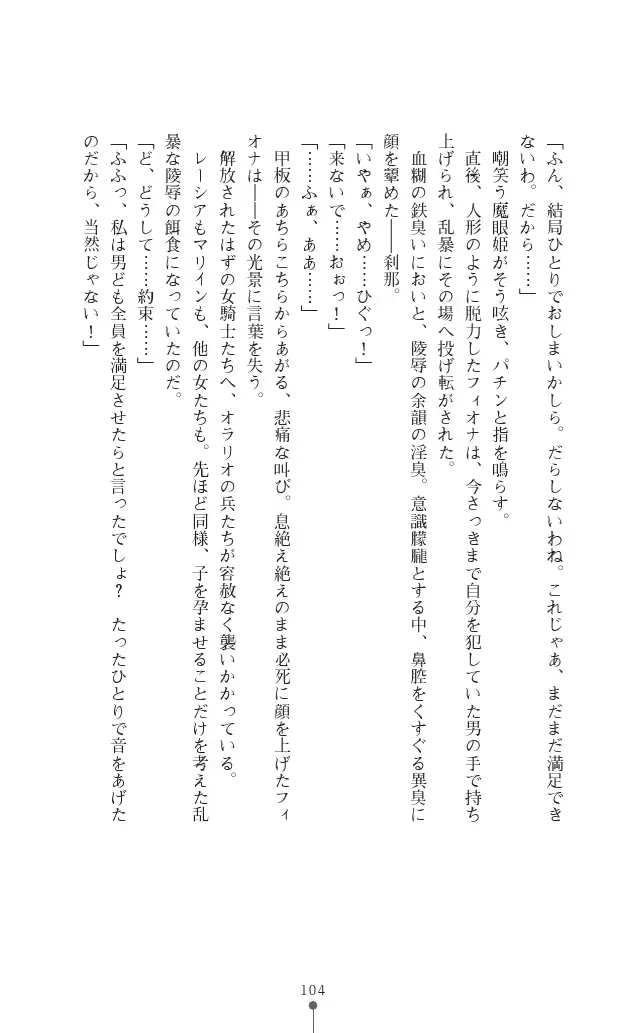 「ふん、結局ひとりでおしまいかしら。だらしないわね。これじゃあ、まだまだ満足でき
ないわ。だから……」
　嘲笑う魔眼姫がそう呟き、パチンと指を鳴らす。
　直後、人形のように脱力したフィオナは、今さっきまで自分を犯していた男の手で持ち
上げられ、乱暴にその場へ投げ転がされた。
　血糊の鉄臭いにおいと、陵辱の余韻の淫臭。意識朦朧とする中、鼻腔をくすぐる異臭に
顔を顰めた――刹那。
「いやぁ、やめ……ひぐっ！」
「来ないで……おぉっ！」
「……ふぁ、ああ……」
　甲板のあちらこちらからあがる、悲痛な叫び。息絶え絶えのまま必死に顔を上げたフィ
オナは――その光景に言葉を失う。
　解放されたはずの女騎士たちへ、オラリオの兵たちが容赦なく襲いかかっている。
　レーシアもマリインも、他の女たちも。先ほど同様、子を孕ませることだけを考えた乱
暴な陵辱の餌食になっていたのだ。
「ど、どうして……約束……」
「ふふっ、私は男ども全員を満足させたらと言ったでしょ？　たったひとりで音をあげた
のだから、当然じゃない！」
104